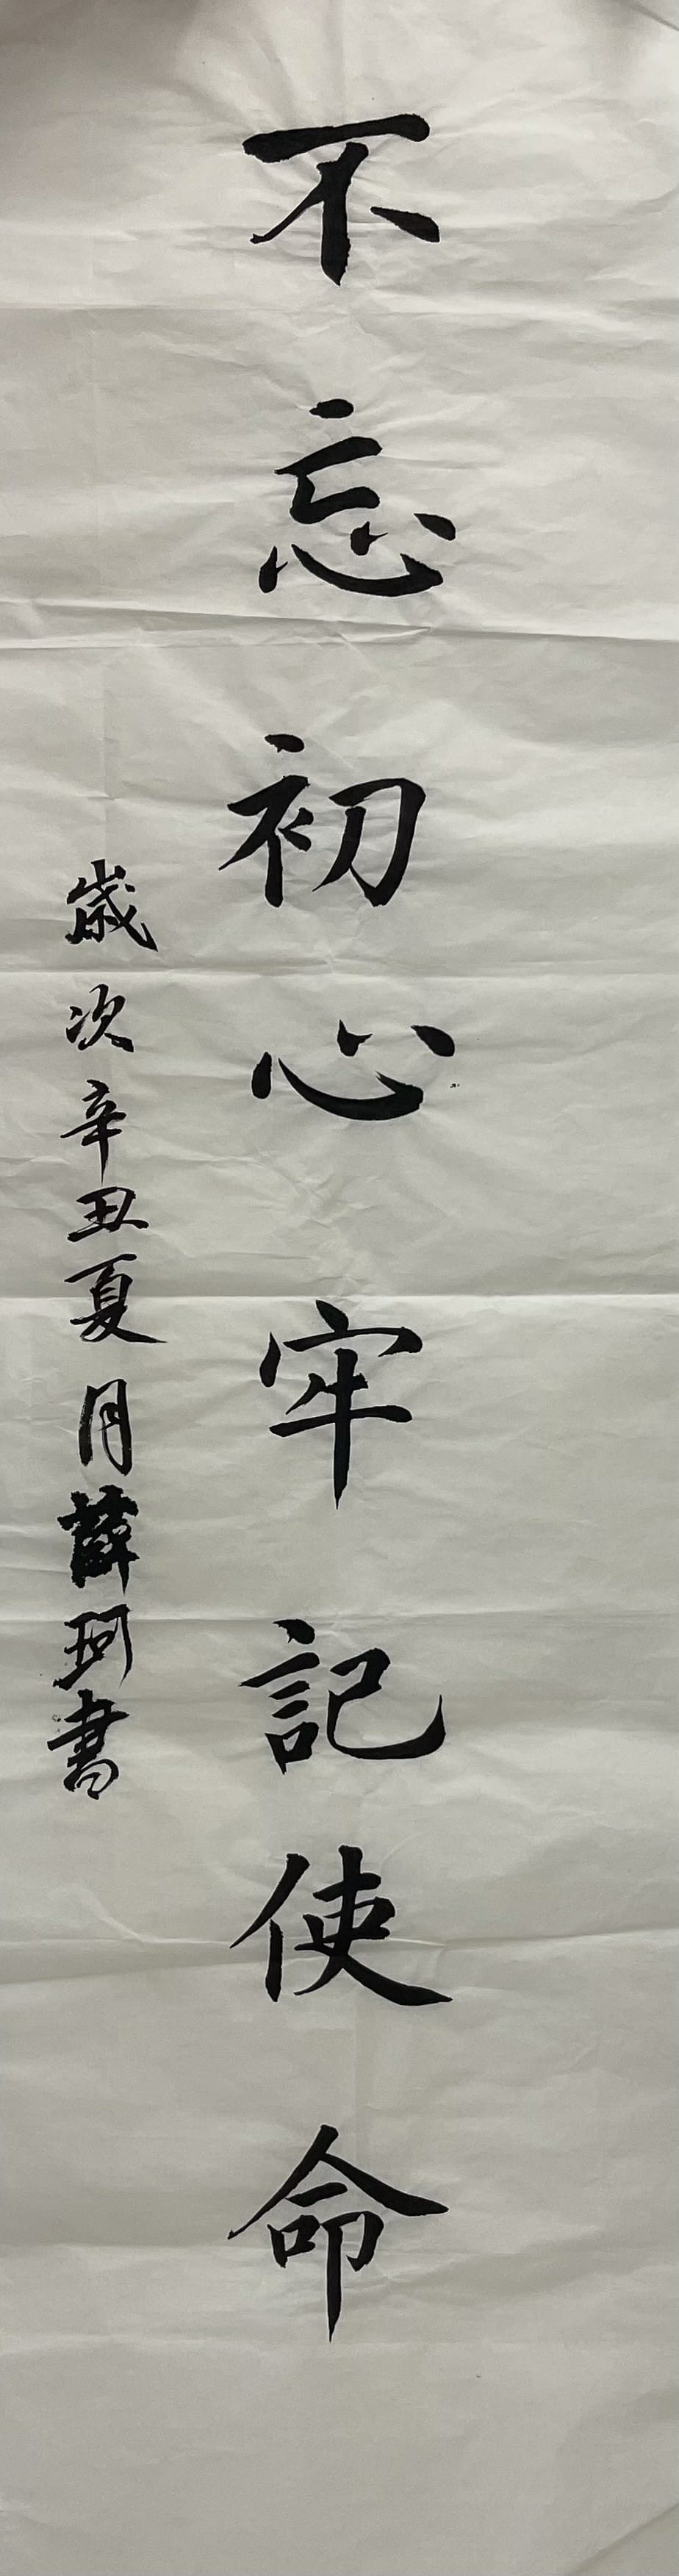 不忘初心牢記使命
歲次辛丑夏月薛珂書